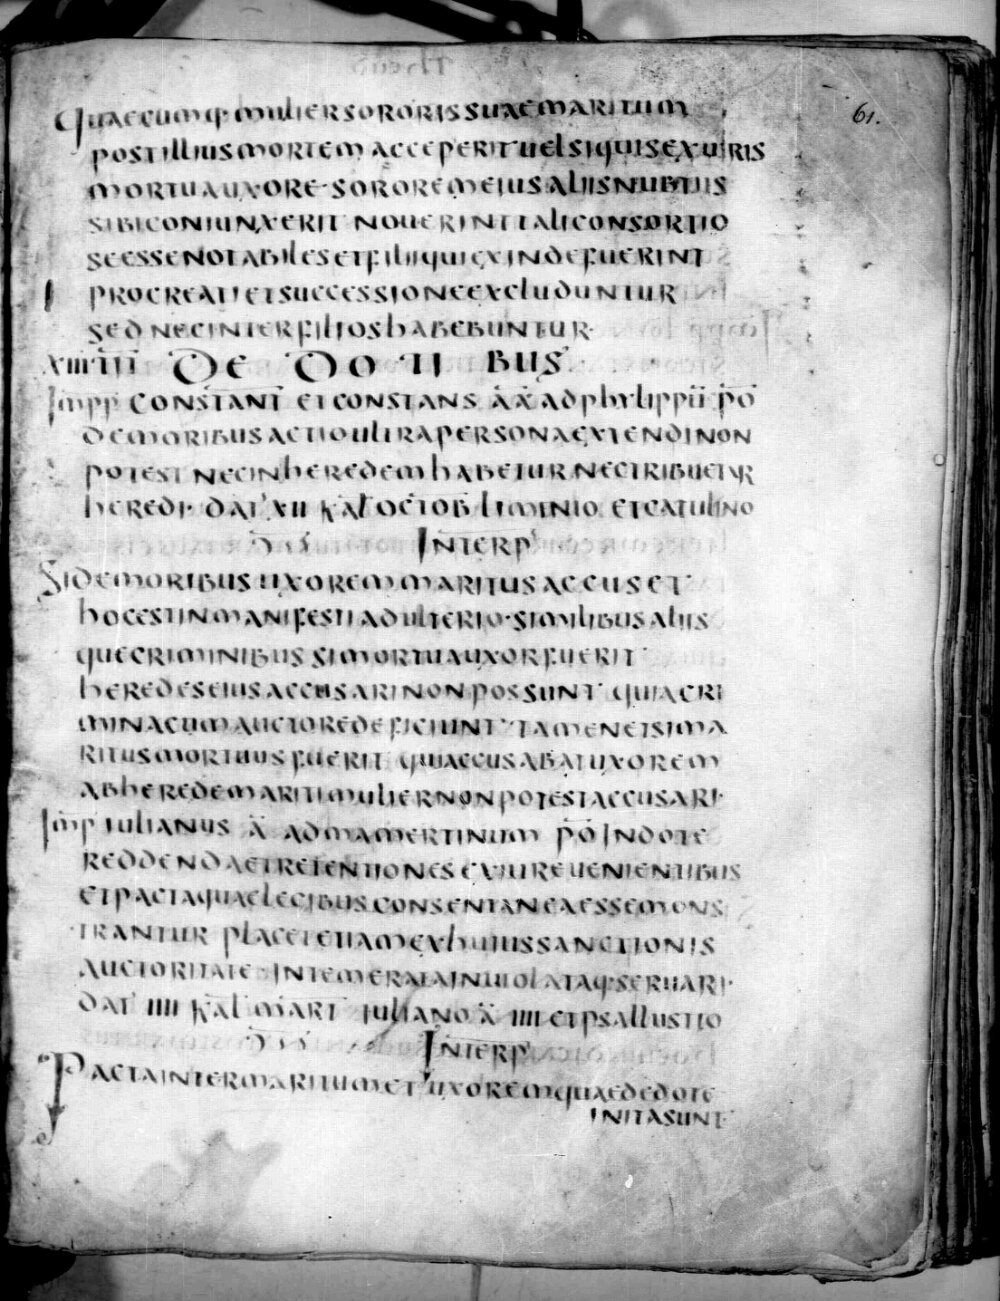 61.
Quaecumq· mulier sororis suae maritum
post illius mortem acceperit uel siquis ex uiris
mortua uxore· sororem eius aliis nubtiis
sibi coniunxerit nouerint tali consortio
se esse notabiles et filii qui exinde fuerint
procreati et successione excluduntur
sed nec inter filios habebuntur·
xiiii iii DE DOTIBUS
Impp constant et constans āā ad phylippū pō
de moribus actio ultra persona extendi non
potest nec in heredem habetur nec tribuetur
heredi· dat xii kal octob liminio et catulino
Interp
Si de moribus uxorem maritus accuset
hoc est in manifesti adulterio· similibus aliis
que criminibus si mortua uxor fuerit
heredes eius accusari non possunt quia cri
mina cum auctore deficiunt· tamen et si ma
ritus mortuus fuerit qui accusabat uxorem
ab herede mariti mulier non potest accusari·
Imp iulianus ā ad mamertinum pō In dote
reddenda et retentiones ex iure uenientibus
et pacta quae legibus consentanea esse mons
trantur placet etiam ex huius sanctionis
auctoritate intemerata inuiolataq· seruari·
dat iiii kal mart iuliano ā iiii et psallustio
Interp
Pacta inter maritum et uxorem quae de dote
inita sunt